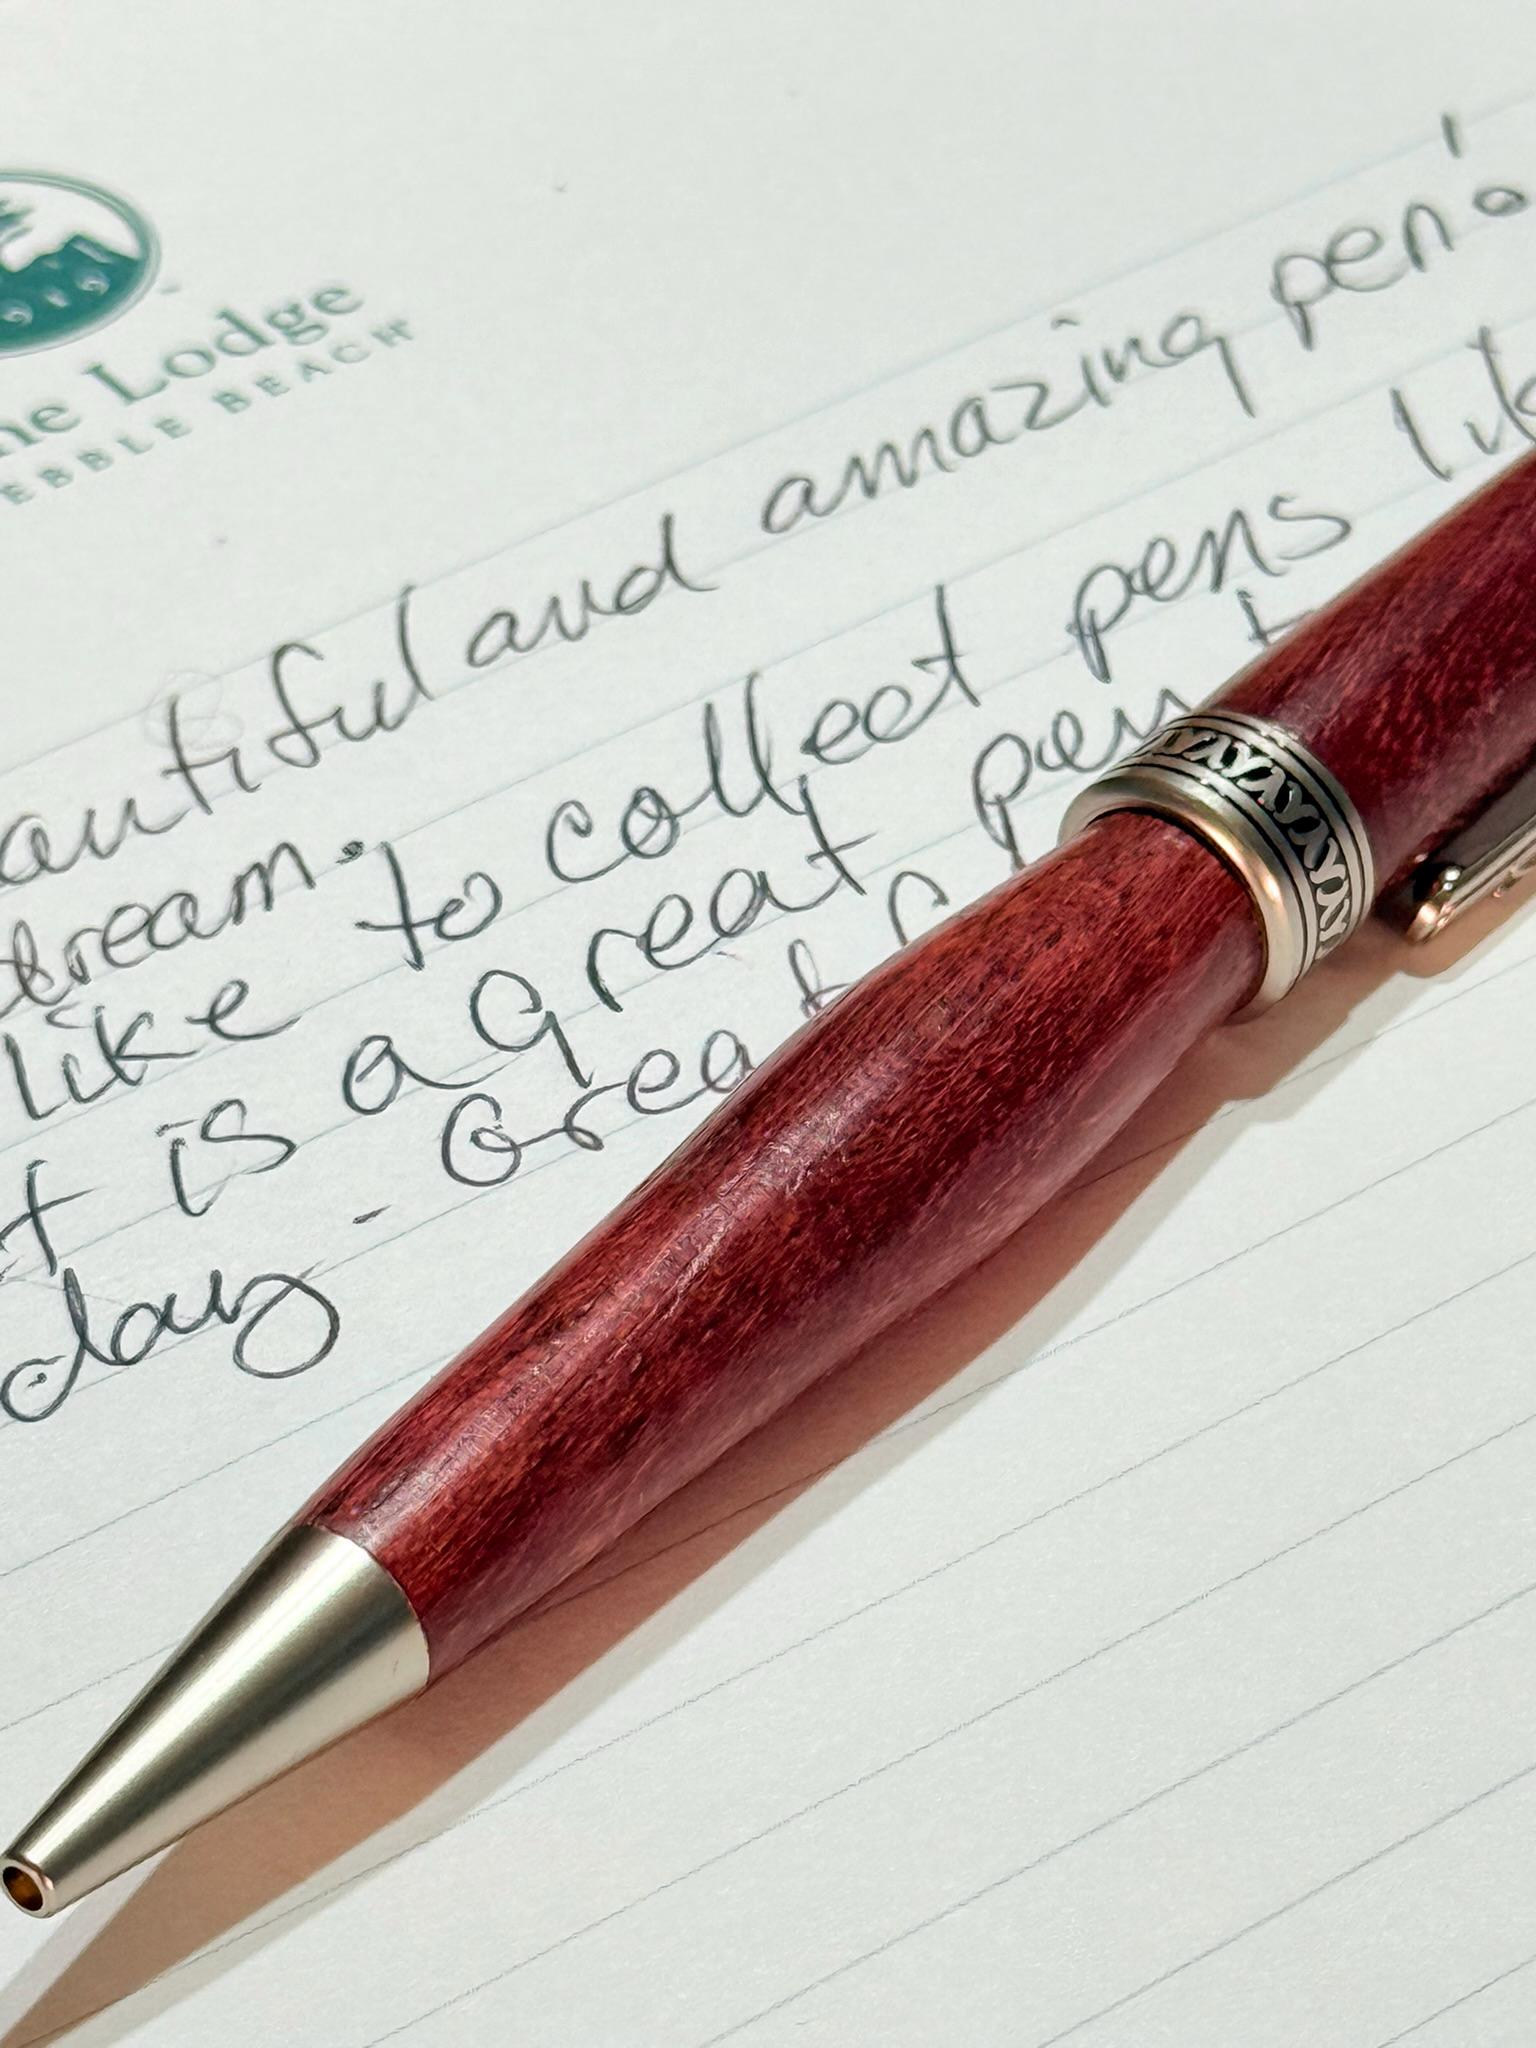 Lodge
EBBLE BEACH
autiful and amazing pen!
stream.
like to collect pens
t is a great pen
day. Great